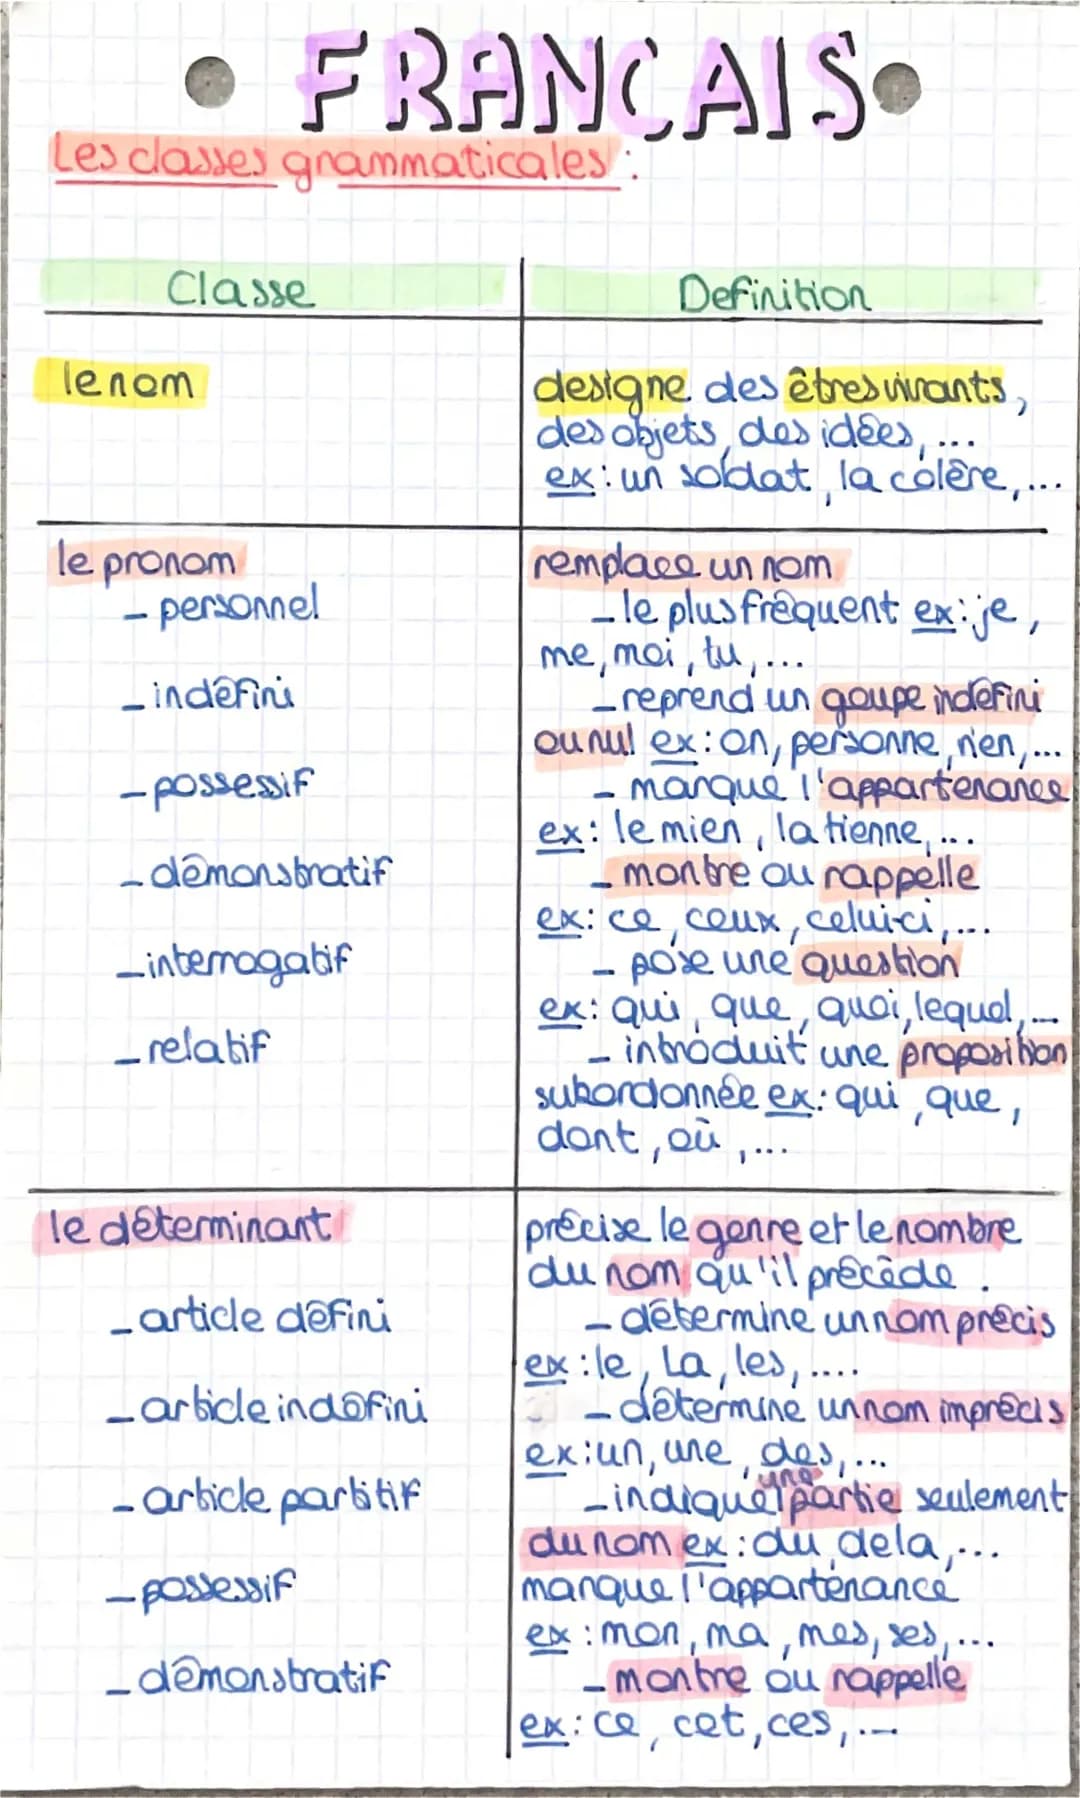 FRANCAIS
Les classes grammaticales :
Classe
Definition
le nom
designe des êtres vivants,
des objets, des idées, ...
ex : un soldat, la colère, ...
le pronom
remplace un nom
- personnel
- le plus fréquent ex : je,
me, moi, tu, ...
- indéfini
- reprend un goupe indéfini
ou nul ex : on, personne, rien, ...
- possessif
- marque l'appartenance
ex : le mien, la tienne, ...
- démonstratif
- montre ou rappelle
ex : ce, ceux, celui-ci, ...
- interrogatif
- pose une question
ex : qui, que, quoi, lequel, ...
- relatif
- introduit une proposition
subordonnée ex : qui, que,
dont, où, ...
le déterminant
précise le genre et le nombre
du nom qu'il précède.
- article défini
- détermine un nom précis
ex : le, La, les, ....
- article indéfini
- détermine un nom imprécis
ex : un, une, des, ...
- article partitif
- indique une partie seulement
du nom ex : du, de la, ...
- possessif
marque l'appartenance
ex : mon, ma, mes, ses, ...
- démonstratif
- montre ou rappelle
ex : ce, cet, ces, ...